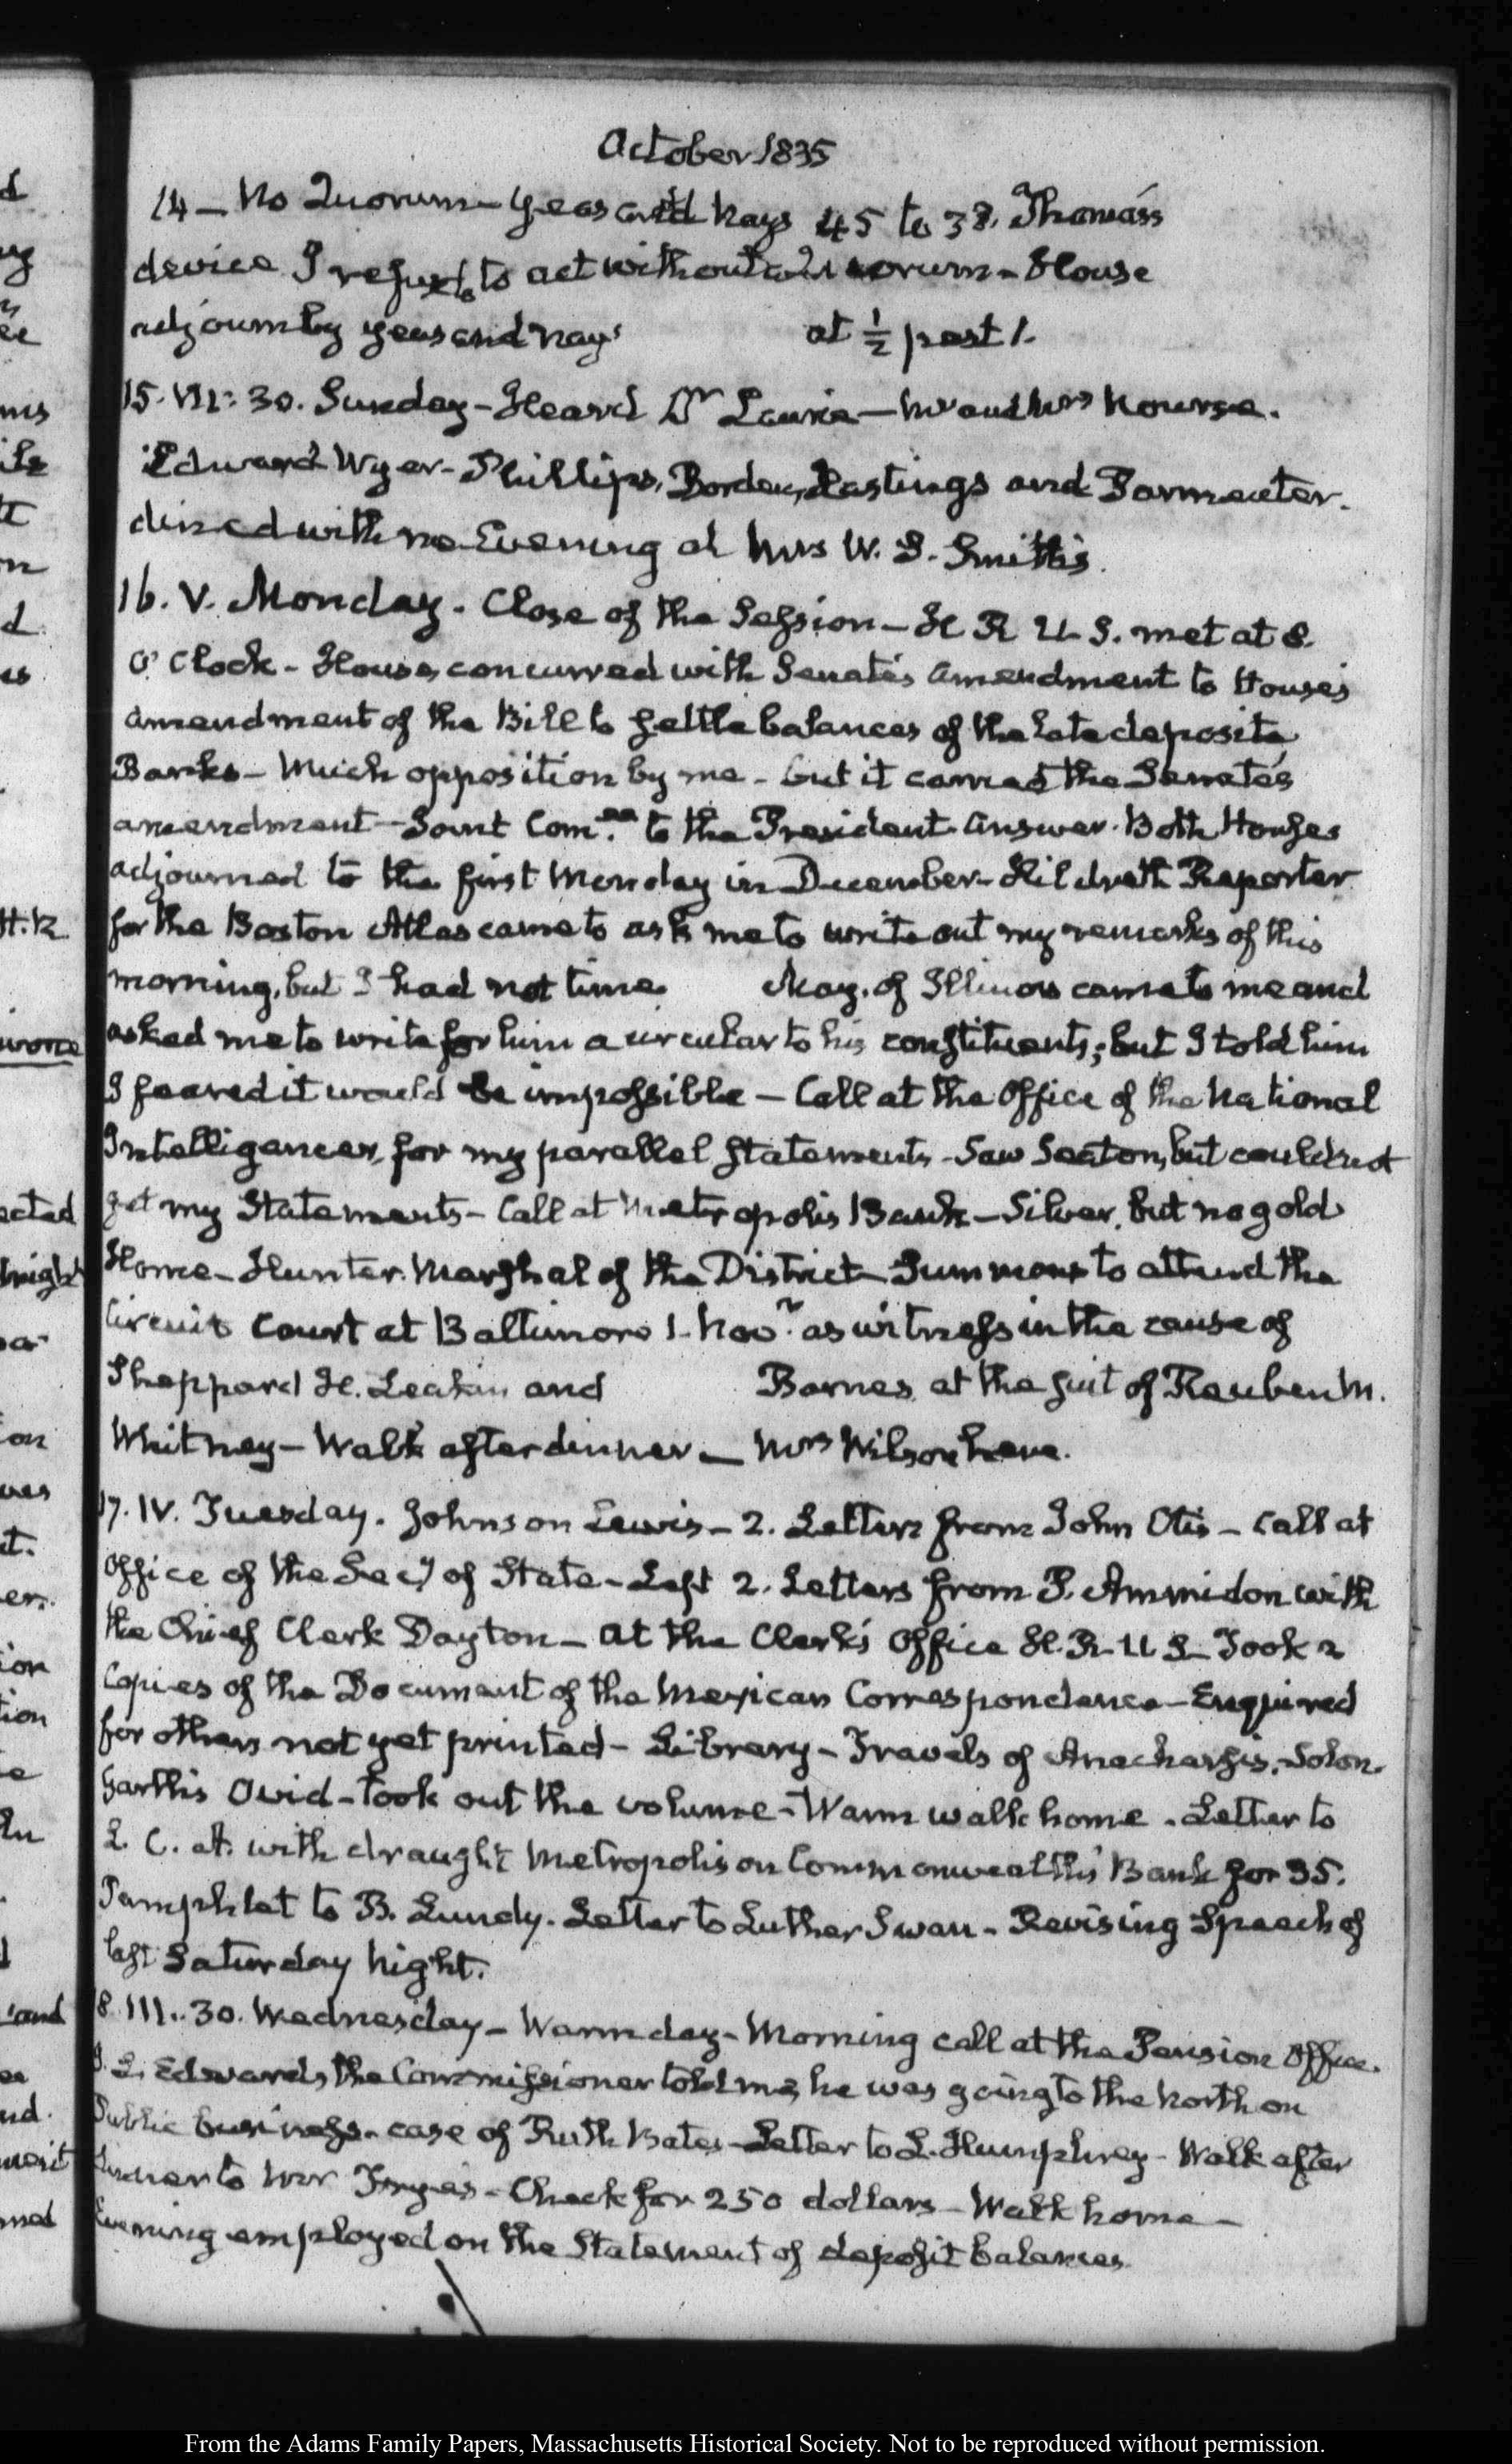 October 1835
14 – No Quorum – Yeas and Nays 45 to 38. Thomas's
device I refuse to act without a Quorum – House
adjourn by yeas and nays at ½ past 1.
15. VII: 30. Sunday – Heard Dr Laurie – Mr and Mrs Nourse.
Edward Wyer – Phillips, Borden, Hastings and Parmenter.
dined with me Evening at Mrs W. S. Smith's.
16. V. Monday. Close of the Session – H R U. S. met at 8.
O' Clock – House concurred with Senate's amendment to House's
amendment of the Bill to settle balances of the late deposite
Banks – Much opposition by me – but it carried the Senate's
amendment – Joint Com.ee to the President. Answer. Both Houses
adjourned to the first Monday in December – Hildreth Reporter
for the Boston Atlas came to ask me to write out my remarks of this
morning, but I had not time May, of Illinois came to me and
asked me to write for him a circular to his constituents; but I told him
I feared it would be impossible – Call at the Office of the National
Intelligencer, for my parallel Statements – Saw Seaton, but could not
get my Statements – Call at Metropolis Bank – Silver, but no gold
Home – Hunter. Marshal of the District – Summons to attend the
Circuit Court at Baltimore 1. Nov.r as witness in the cause of
Sheppard H. Leakin and Barnes at the suit of Reuben M.
Whitney – Walk after dinner – Mrs Wilson here.
17. IV. Tuesday. Johnson Lewis – 2. Letters from John Otis – Call at
Office of the Secy of State – Left 2. Letters from P. Ammidon with
the Chief Clerk Dayton – at the Clerk's Office H. R. U S – Took 2
Copies of the Document of the Mexican Correspondence – Enquired
for others not yet printed – Library – Travels of Anacharsis. Solon.
Garth's Ovid – took out the volume – Warm walk home. Letter to
L. C. A. with draught Metropolis on Commonwealth's Bank for 35.
Pamphlet to B. Lundy. Letter to Luther Swan – Revising Speech of
last Saturday Night.
18. III.. 30. Wednesday – Warm day – Morning call at the Pension Office.
J. L. Edwards, the Commissioner told me, he was going to the North on
Public business – case of Ruth Bates – Letter to L. Humphrey – Walk after
dinner to Mr Frye's – Check for 250 dollars – Walk home –
Evening employed on the Statement of deposit balances
From the Adams Family Papers, Massachusetts Historical Society. Not to be reproduced without permission.